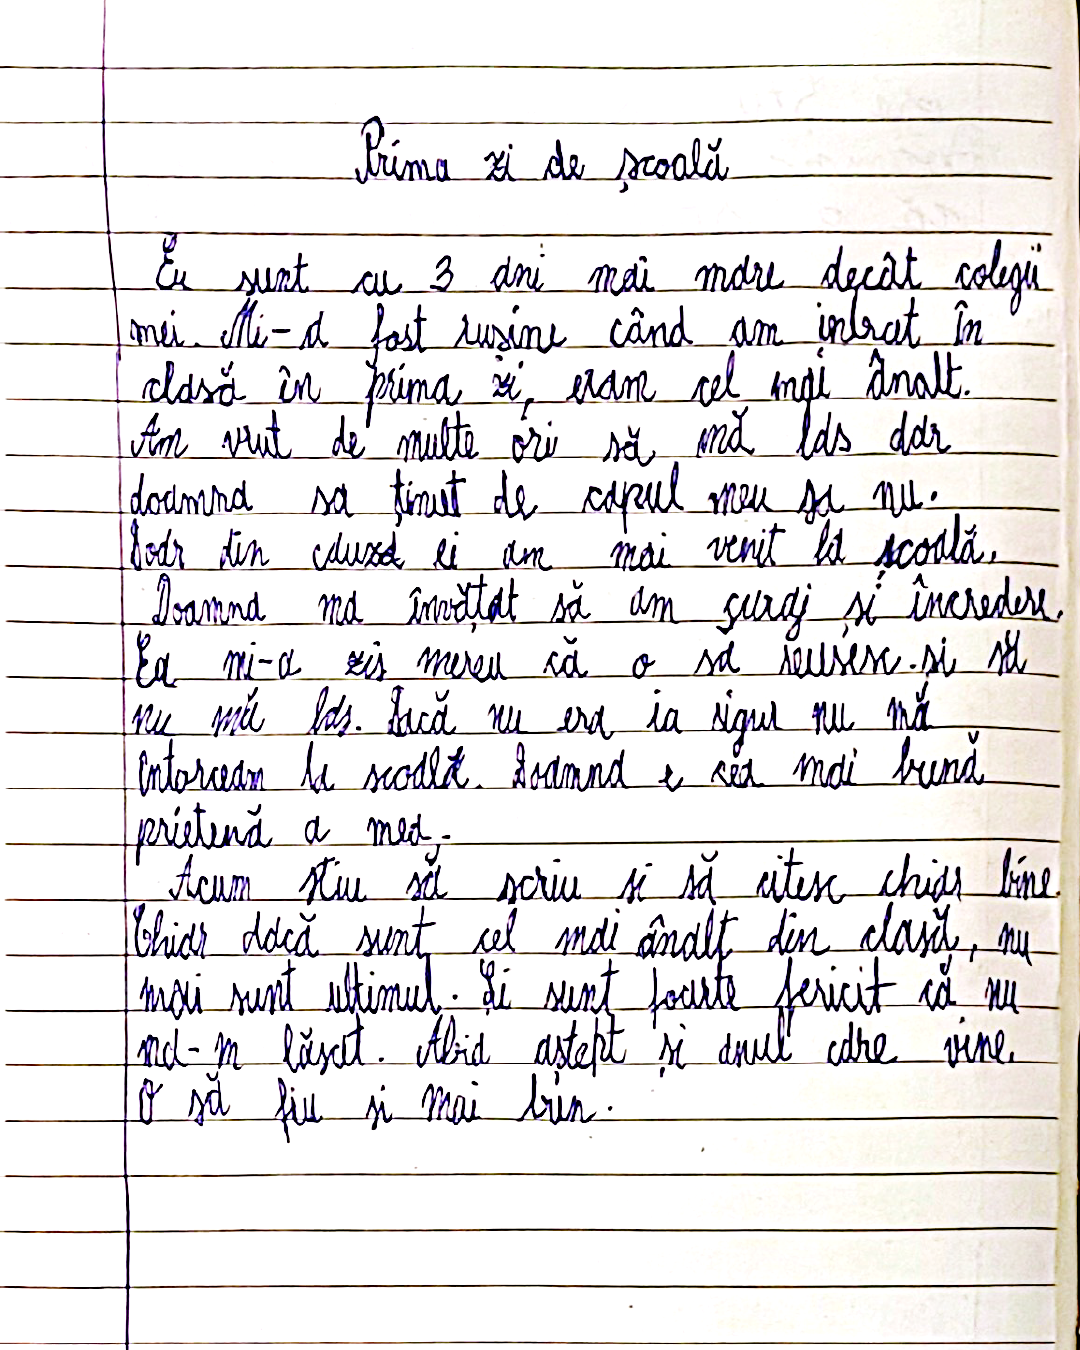 Prima zi de școală
Eu sunt cu 3 ani mai mare decât colegii
mei. Mi-a fost rusine când am intrat în
clasă în prima zi, eram cel mai ânalt.
Am vrut de multe ori să mă las dar
doamna sa ținut de capul meu sa nu.
Doar din cauza ei am mai venit la școală.
Doamna ma învățat să am curaj și încredere.
Ea mi-a zis mereu că o să reusesc și să
nu mă las. Dacă nu era ia sigur nu mă
întorceam la scoală. Doamna e cea mai bună
prietenă a mea.
Acum stiu să scriu si să citesc chiar bine.
Chiar dacă sunt cel mai ânalt din clasă, nu
mai sunt ultimul. Și sunt foarte fericit că nu
ma-m lăsat. Abia aștept și anul care vine.
O să fiu si mai bun.